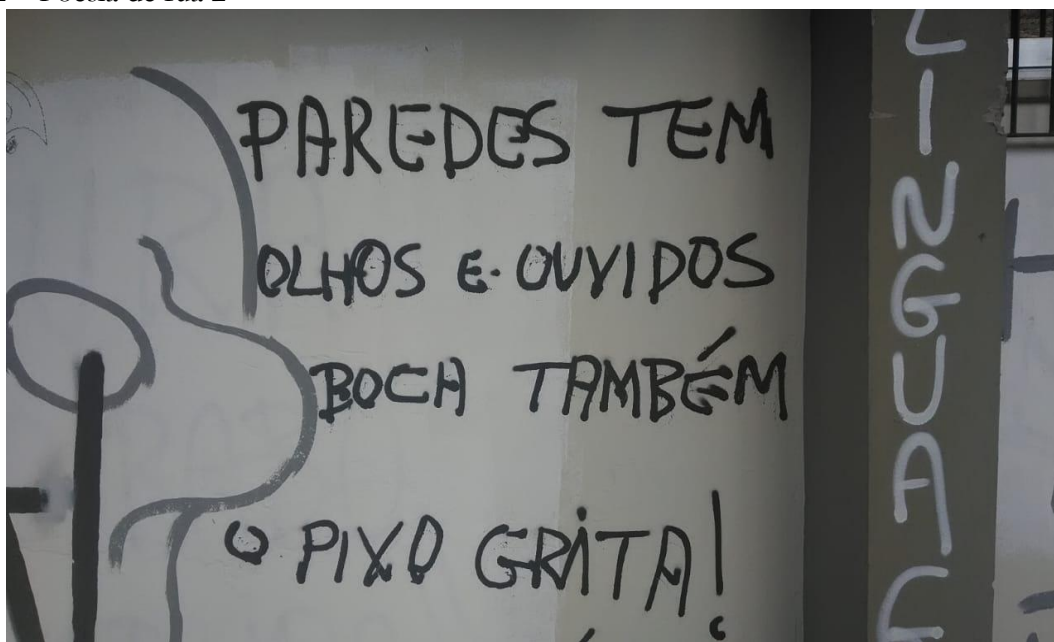 PAREDES TEM
OLHOS E OUVIDOS
BOCA TAMBÉM
O PIXO GRITA!
LINGUAG